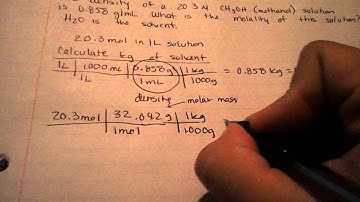 density of a 20.3 M CH3OH (methanol) solution
is 0.858 g/mL. What is the molality of this solution?
H2O is the solvent.
20.3 mol in 1L solution
Calculate kg of solvent
1L | 1000 mL | 0.858g | 1kg = 0.858 kg =
1L 1mL 1000g
density molar mass
20.3mol | 32.042g | 1kg
1mol 1000g